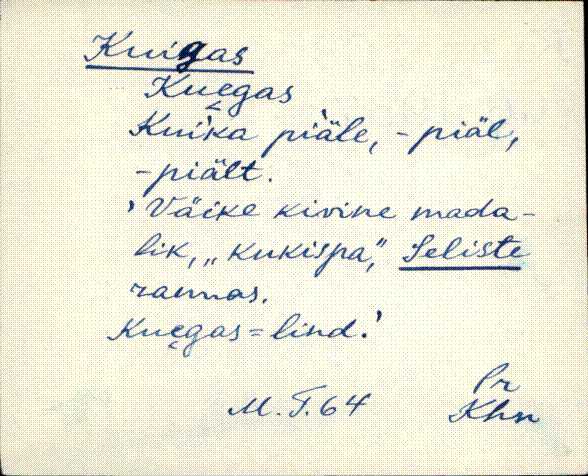 Kuigas
Kue̬gas
Kui'ka piäle, -piäl,
-piält.
'Väike kivine mada-
lik, „kukispa”, Seliste
rannas.
Kue̬gas = lind.'
M. T. 64 Pr
Khn